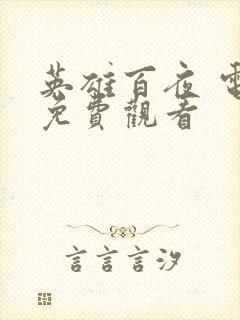 英雄百夜 電
免費觀看
言言言汐